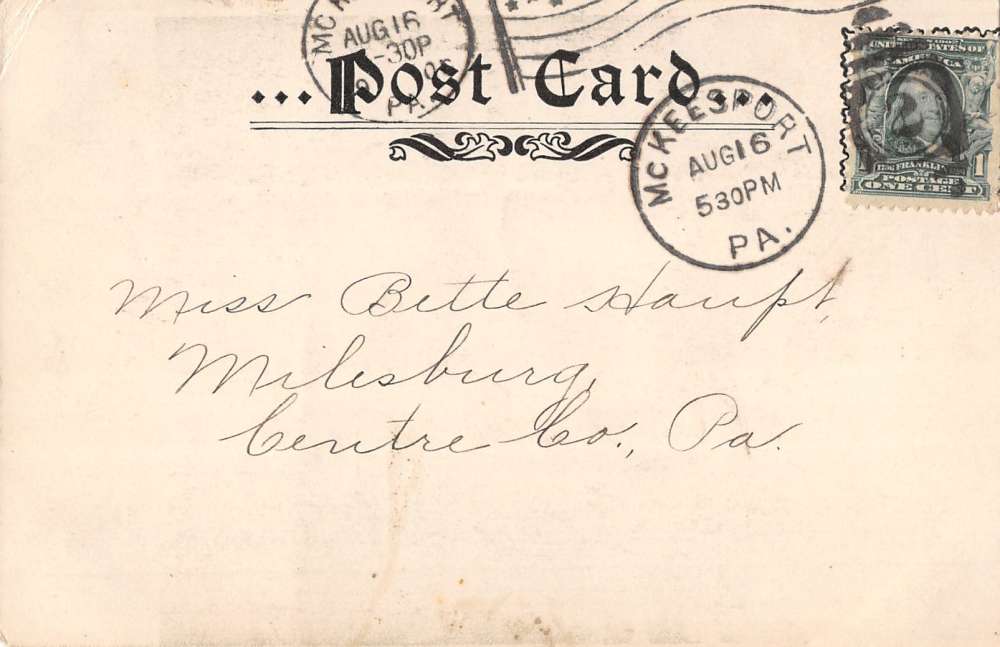 McKEESPORT
AUG 16
30P
PA.
...Post Card...
McKEESPORT
AUG 16
530PM
PA.
SERIES 1902
UNITED STATES OF
AMERICA
FRANKLIN
POSTAGE
1
ONE CENT
2
Miss Bette Haupt,
Milesburg,
Centre Co., Pa.